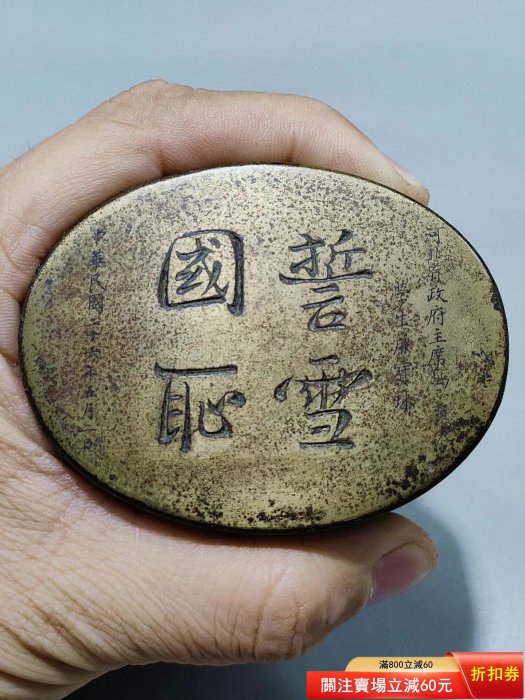 河北省政府主席馮
學生康
誓雪
國恥
中華民國二十六年五月一日
滿800立減60
關注賣場立減60元
折扣券